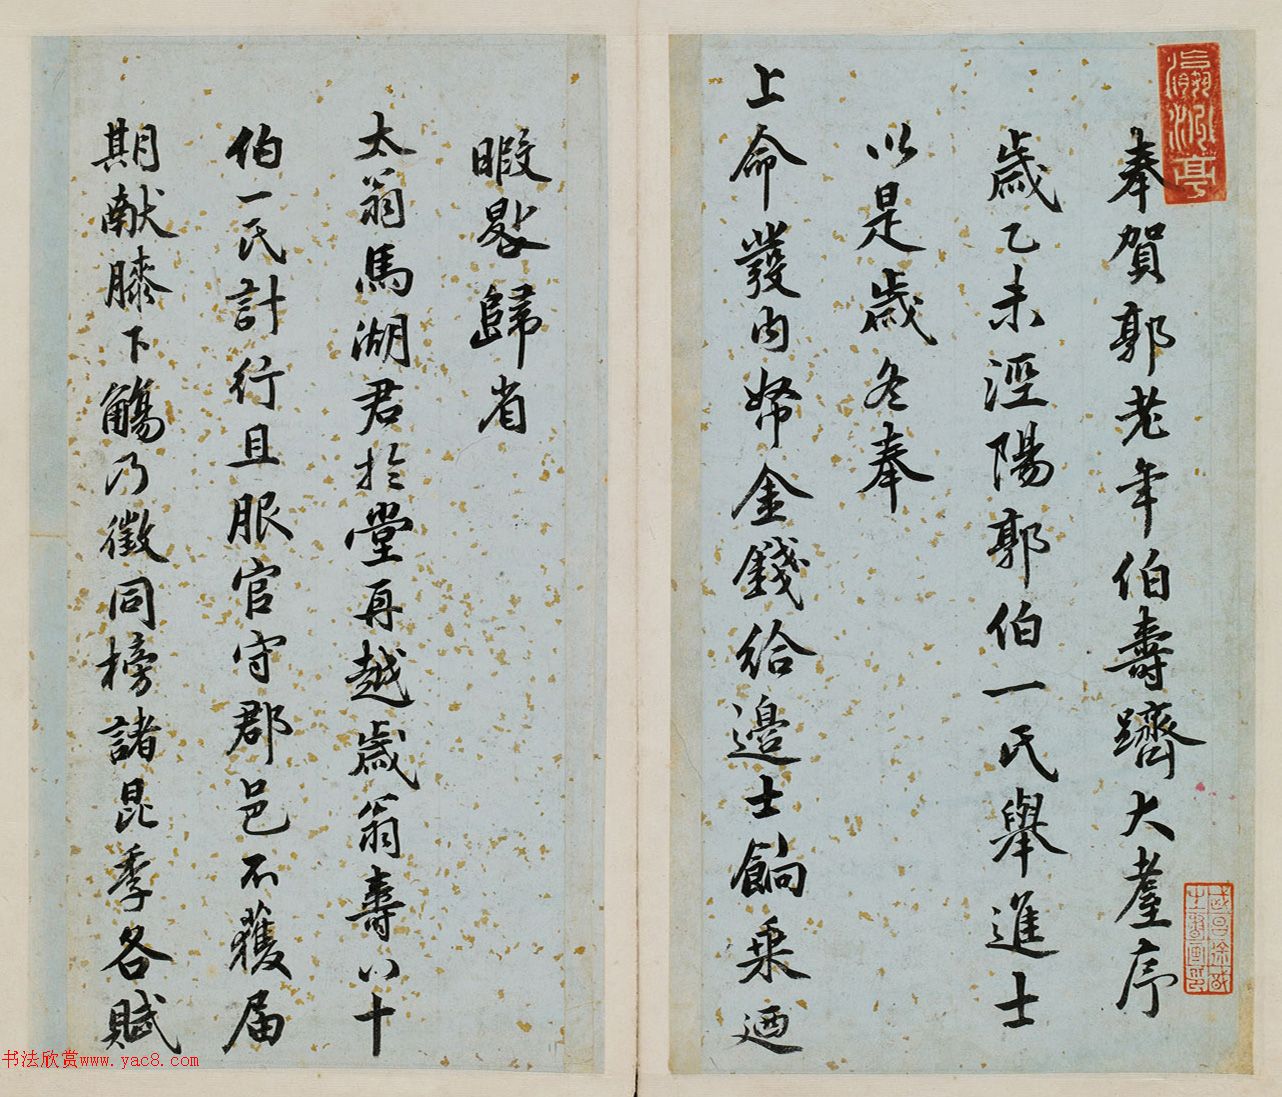 奉賀郭老年伯壽躋大耋序
歲乙未涇陽郭伯一氏舉進士
以是歲冬奉
上命發內帑金錢給邊士餉乘迺
暇晷歸省
太翁馬湖君於堂再越歲翁壽八十
伯一氏計行且服官守郡邑不獲屆
期献膝下觴乃徵同榜諸昆季各賦
书法欣赏www.yac8.com